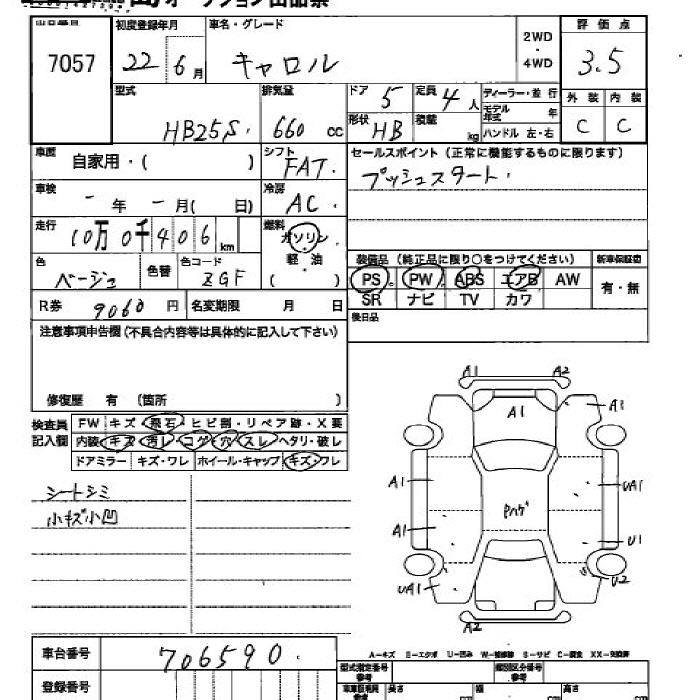 オークション出品票
出品番号 初度登録年月 車名・グレード 2WD ・ 4WD 評価点
7057 22年6月 キャロル 3.5
型式 排気量 ドア 5 定員 4人 ディーラー・並行 外装 内装
HB25S. 660 cc 形状 HB 積載 kg モデル年式 年 C C
ハンドル 左・右
車歴 自家用・( ) シフト FAT. セールスポイント(正常に機能するものに限ります)
車検 - 年 - 月( 日) 冷房 AC. プッシュスタート.
走行 10万0千406km 燃料 ガソリン・軽油 ( )
装備品(純正品に限り○をつけてください) 新車保証書
色 ベージュ 色替 色コード ZGF PS PW ABS エアB AW 有・無
SR ナビ TV カワ
R券 9060円 名変期限 月 日 後日品
注意事項申告欄(不具合内容等は具体的に記入して下さい)
修復歴 有 (箇所 )
検査員記入欄 FW キズ・飛石・ヒビ割・リペア跡・X要
内装・キズ・汚レ・コゲ・穴・スレ・ヘタリ・破レ
ドアミラー キズ・ワレ ホイール・キャップ キズ・ワレ
シートシミ
小キズ小凹
A1 A2
A1 A1
A1 UA1
Pハゲ
A1 U1
UA1 U2
A2
A-キズ E-エクボ U-凹み W-補修跡 S-サビ C-腐食 XX-交換済
車台番号 706590.
登録番号
型式指定番号 参考 類別区分番号 参考
長さ cm 幅 cm 高さ cm